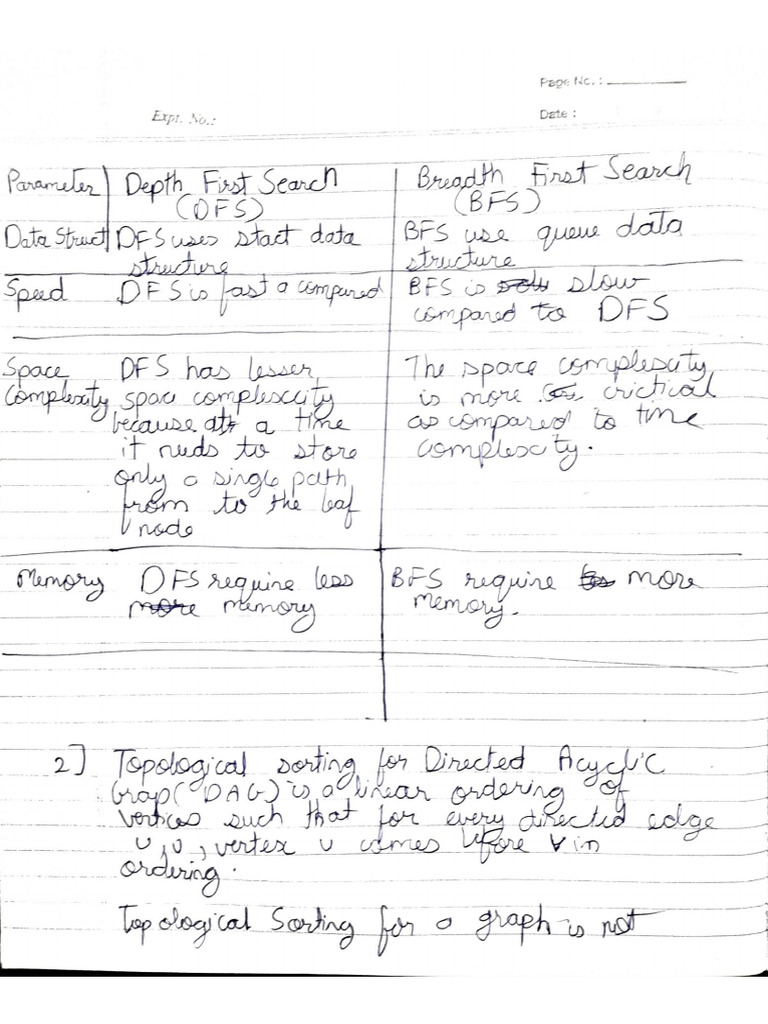 Page No. :
Expt. No.:
Date :
Parameter Depth First Search Breadth First Search
(DFS) (BFS)
Data Struct DFS uses start data BFS use queue data
structure structure
Speed DFS is fast a compured BFS is slow
compared to DFS
Space DFS has lesser The space complexcity
Complexity space complexcity is more crictical
because at a time as compared to time
it needs to store complexcity.
only a single path
from to the leaf
node
Memory DFS require less BFS require more
memory memory.
2] Topological sorting for Directed Acyclic
Grap( DAG) is a linear ordering of
vertices such that for every directed edge
u,v, vertex u comes before v in
ordering.
Topological Sorting for a graph is not